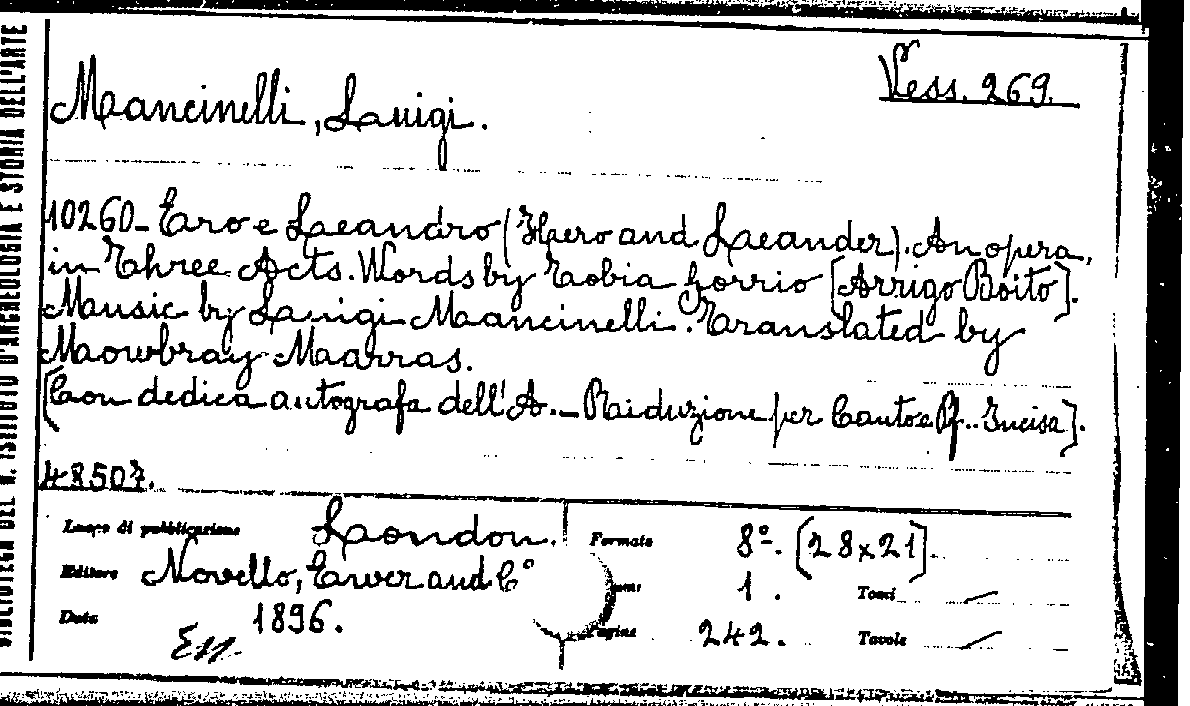 BIBLIOTECA DEL R. ISTITUTO D'ARCHEOLOGIA E STORIA DELL'ARTE
Vess. 269.
Mancinelli, Luigi.
10260_ Ero e Leandro (Hero and Leander). An opera,
in Three Acts. Words by Tobia Gorrio [Arrigo Boito].
Music by Luigi Mancinelli. Translated by
Mowbray Marras.
[Con dedica autografa dell'A. _ Riduzione per Canto e Pf.. Incisa].
48507.
Luogo di pubblicazione London. Formato 8º. [28x21].
Editore Novello, Ewer and Cº 1. Tomi
Data 1896. Pagine 242. Tavole